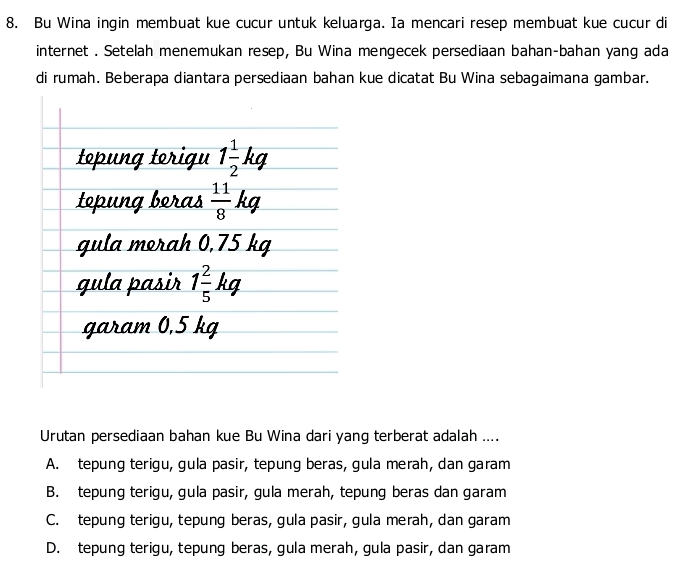 8. Bu Wina ingin membuat kue cucur untuk keluarga. Ia mencari resep membuat kue cucur di
internet . Setelah menemukan resep, Bu Wina mengecek persediaan bahan-bahan yang ada
di rumah. Beberapa diantara persediaan bahan kue dicatat Bu Wina sebagaimana gambar.
tepung terigu 1 1/2 kg
tepung beras 11/8 kg
gula merah 0,75 kg
gula pasir 1 2/5 kg
garam 0,5 kg
Urutan persediaan bahan kue Bu Wina dari yang terberat adalah ....
A. tepung terigu, gula pasir, tepung beras, gula merah, dan garam
B. tepung terigu, gula pasir, gula merah, tepung beras dan garam
C. tepung terigu, tepung beras, gula pasir, gula merah, dan garam
D. tepung terigu, tepung beras, gula merah, gula pasir, dan garam